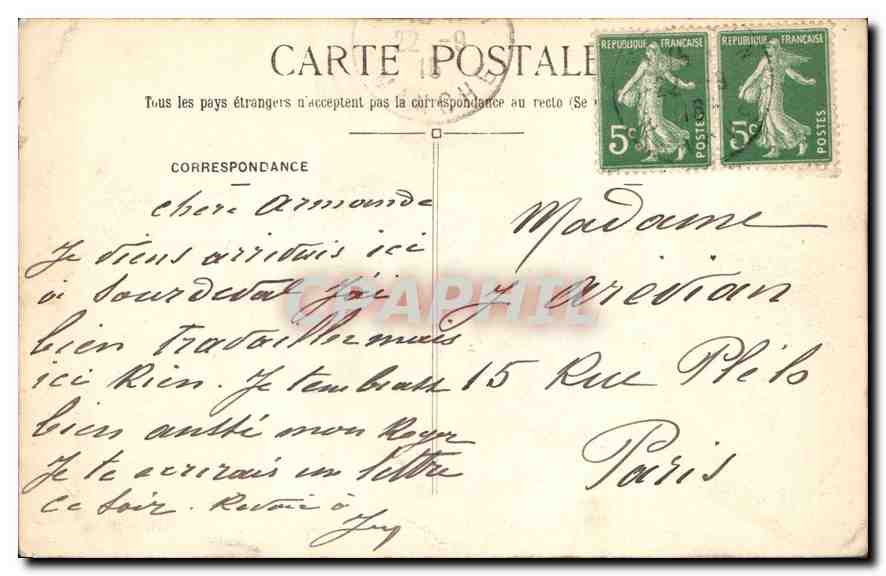 CARTE POSTALE
Tous les pays étrangers n'acceptent pas la correspondance au recto (Se
22 -9
MANCHE
REPUBLIQUE FRANÇAISE
5c
POSTES
REPUBLIQUE FRANÇAISE
5c
POSTES
CORRESPONDANCE
chère Armande
Je viens arrivais ici
a Sourdeval J'ai
bien travailler mais
ici Rien. Je t'embrasse
bien aussi mon Roger
Je te ecrirais un lettre
ce soir.
Madame
J Arévian
15 Rue
Paris
CPAPHIL